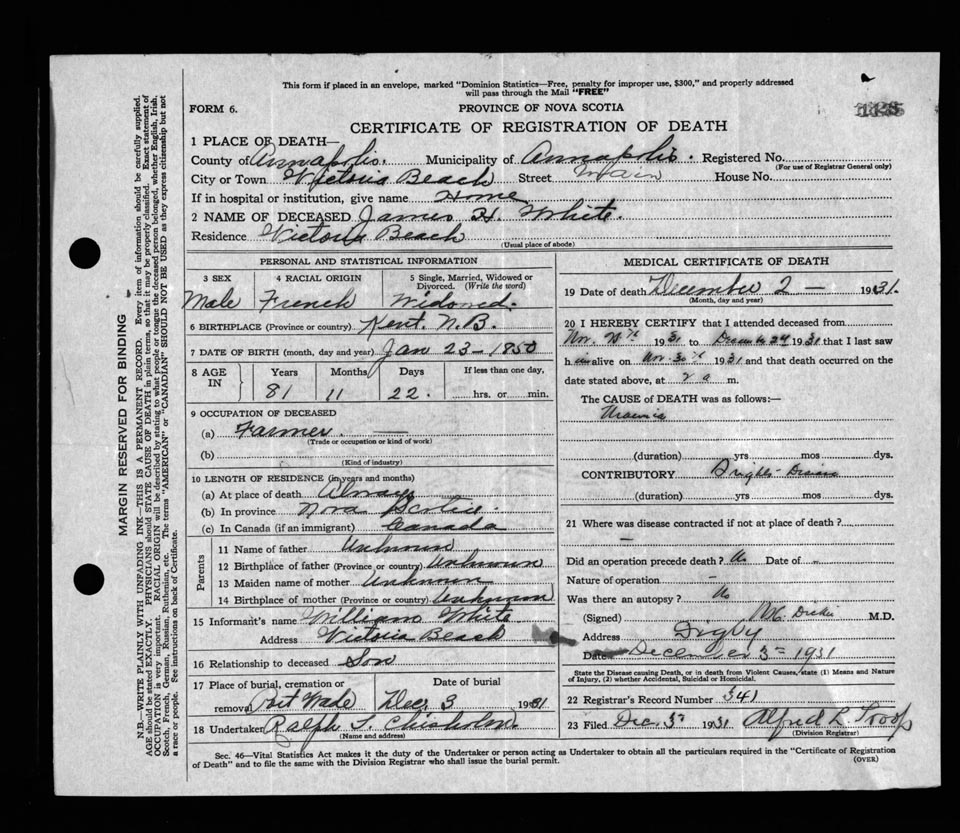 This form if placed in an envelope, marked "Dominion Statistics—Free, penalty for improper use, $300," and properly addressed
will pass through the Mail "FREE"
FORM 6.
PROVINCE OF NOVA SCOTIA
CERTIFICATE OF REGISTRATION OF DEATH
1 PLACE OF DEATH—
County of Annapolis. Municipality of Annapolis. Registered No.
(For use of Registrar General only)
City or Town Victoria Beach Street Main House No.
If in hospital or institution, give name Home
2 NAME OF DECEASED James H. White.
Residence Victoria Beach
(Usual place of abode)
PERSONAL AND STATISTICAL INFORMATION
3 SEX 4 RACIAL ORIGIN 5 Single, Married, Widowed or
Divorced. (Write the word)
Male French Widowed.
6 BIRTHPLACE (Province or country) Kent. N.B.
7 DATE OF BIRTH (month, day and year) Jan 23 - 1850
8 AGE IN Years Months Days If less than one day,
81 11 22. hrs. or min.
9 OCCUPATION OF DECEASED
(a) Farmer.
(Trade or occupation or kind of work)
(b)
(Kind of industry)
10 LENGTH OF RESIDENCE (in years and months)
(a) At place of death Always
(b) In province Nova Scotia.
(c) In Canada (if an immigrant) Canada
Parents
11 Name of father Unknown
12 Birthplace of father (Province or country) Unknown
13 Maiden name of mother Unknown
14 Birthplace of mother (Province or country) Unknown
15 Informant's name William White
Address Victoria Beach
16 Relationship to deceased Son
17 Place of burial, cremation or Date of burial
removal Dec. 3 1931
18 Undertaker Ralph Chisholm.
(Name and address)
MEDICAL CERTIFICATE OF DEATH
19 Date of death December 2 — 1931.
(Month, day and year)
20 I HEREBY CERTIFY that I attended deceased from
Nov. 1931 to December 2nd 1931 that I last saw
him alive on Nov. 30th 1931 and that death occurred on the
date stated above, at 2 a m.
The CAUSE OF DEATH was as follows:—
Uraemia
(duration) yrs mos dys.
CONTRIBUTORY Brights Disease
(duration) yrs mos dys.
21 Where was disease contracted if not at place of death?
—
Did an operation precede death? No Date of -
Nature of operation —
Was there an autopsy? No
(Signed) M.D.
Address Digby
Date December 3rd 1931
State the Disease causing Death, or in death from Violent Causes, state (1) Means and Nature
of Injury, (2) whether Accidental, Suicidal or Homicidal.
22 Registrar's Record Number 341
23 Filed Dec. 3rd 1931 Alfred L Troop
(Division Registrar)
Sec. 46—Vital Statistics Act makes it the duty of the Undertaker or person acting as Undertaker to obtain all the particulars required in the "Certificate of Registration
of Death" and to file the same with the Division Registrar who shall issue the burial permit.
(OVER)
MARGIN RESERVED FOR BINDING
N.B.—WRITE PLAINLY WITH UNFADING INK—THIS IS A PERMANENT RECORD. Every item of information should be carefully supplied.
AGE should be stated EXACTLY. PHYSICIANS should STATE CAUSE OF DEATH in plain terms, so that it may be properly classified. Exact statement of
OCCUPATION is very important. RACIAL ORIGIN will be described by stating to what people or tongue the deceased person belonged, whether English, Irish,
Scotch, French, German, Russian, Ruthenian, etc. The terms "AMERICAN" or "CANADIAN" SHOULD NOT BE USED as they express citizenship but not
a race or people. See instructions on back of Certificate.